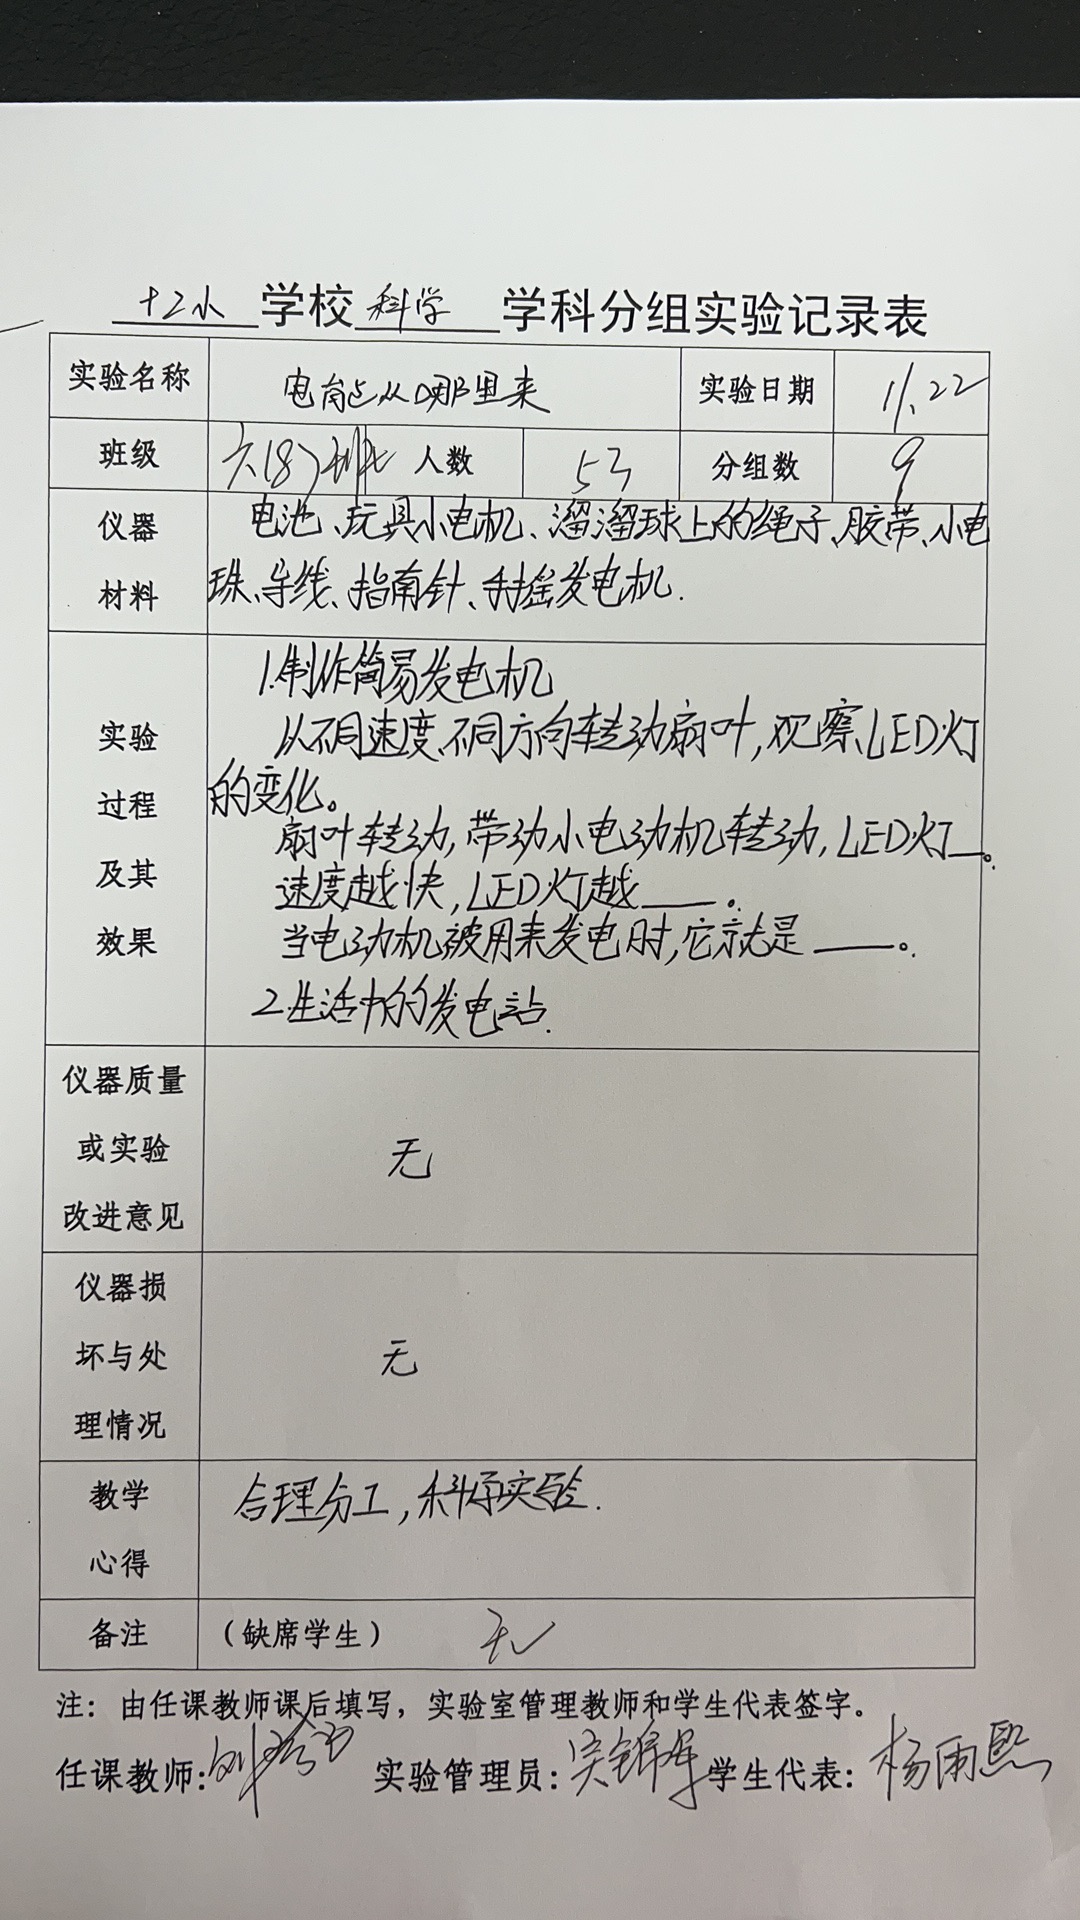 十二小学校科学学科分组实验记录表
实验名称 电能从哪里来 实验日期 11.22
班级 六(8)班 人数 53 分组数 9
仪器材料 电池、玩具小电机、溜溜球上的绳子、胶带、小电
珠、导线、指南针、手摇发电机.
实验过程及其效果 1.制作简易发电机
从不同速度、不同方向转动扇叶,观察LED灯
的变化。
扇叶转动,带动小电动机转动,LED灯__。
速度越快,LED灯越___。
当电动机被用来发电时,它就是___。
2.生活中的发电站.
仪器质量或实验改进意见 无
仪器损坏与处理情况 无
教学心得 合理分工,科学实验.
备注 (缺席学生) 无
注:由任课教师课后填写,实验室管理教师和学生代表签字。
任课教师: 实验管理员: 学生代表:杨雨熙